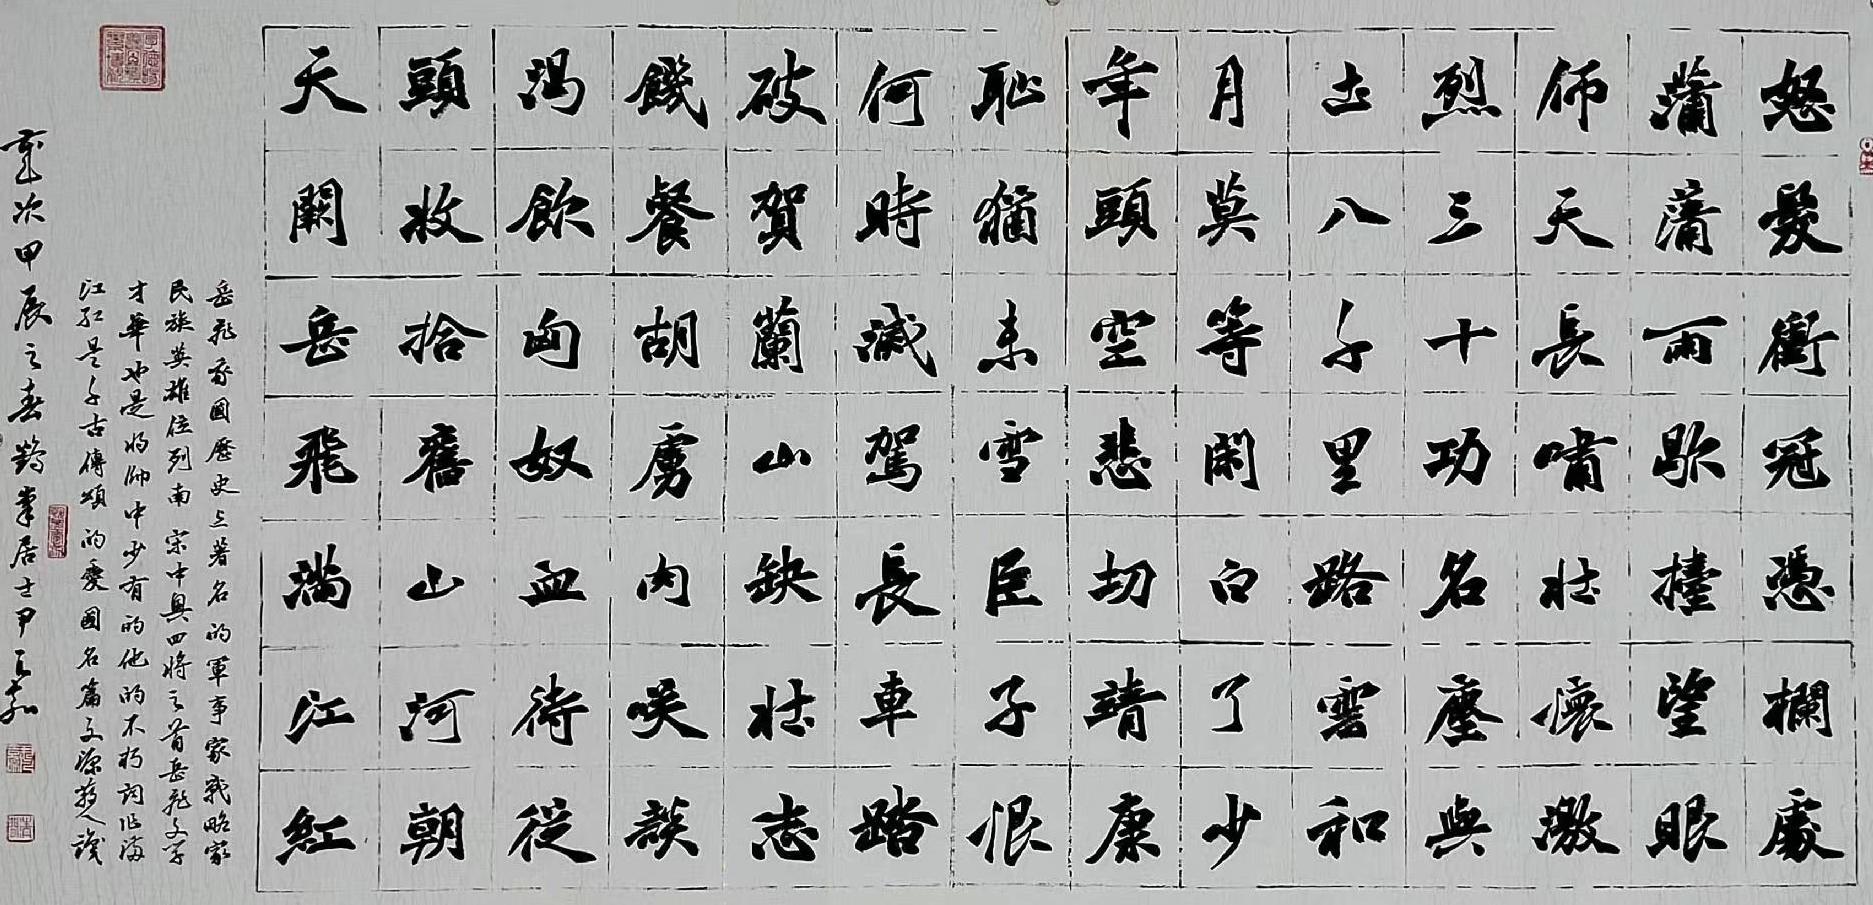 怒髮衝冠憑欄處
瀟瀟雨歇擡望眼
仰天長嘯壯懷激
烈三十功名塵與
土八千里路雲和
月莫等閑白了少
年頭空悲切靖康
耻猶未雪臣子恨
何時滅駕長車踏
破賀蘭山缺壯志
饑餐胡虜肉笑談
渴飲匈奴血待從
頭收拾舊山河朝
天闕岳飛滿江紅
岳飛我國歷史上著名的軍事家戰略家
民族英雄位列南宋中興四將之首岳飛文学
才華也是将帥中少有的他的不朽詞作滿
江紅是千古傳頌的愛國名篇文源識
歲次甲辰之春鶴峯居士尹